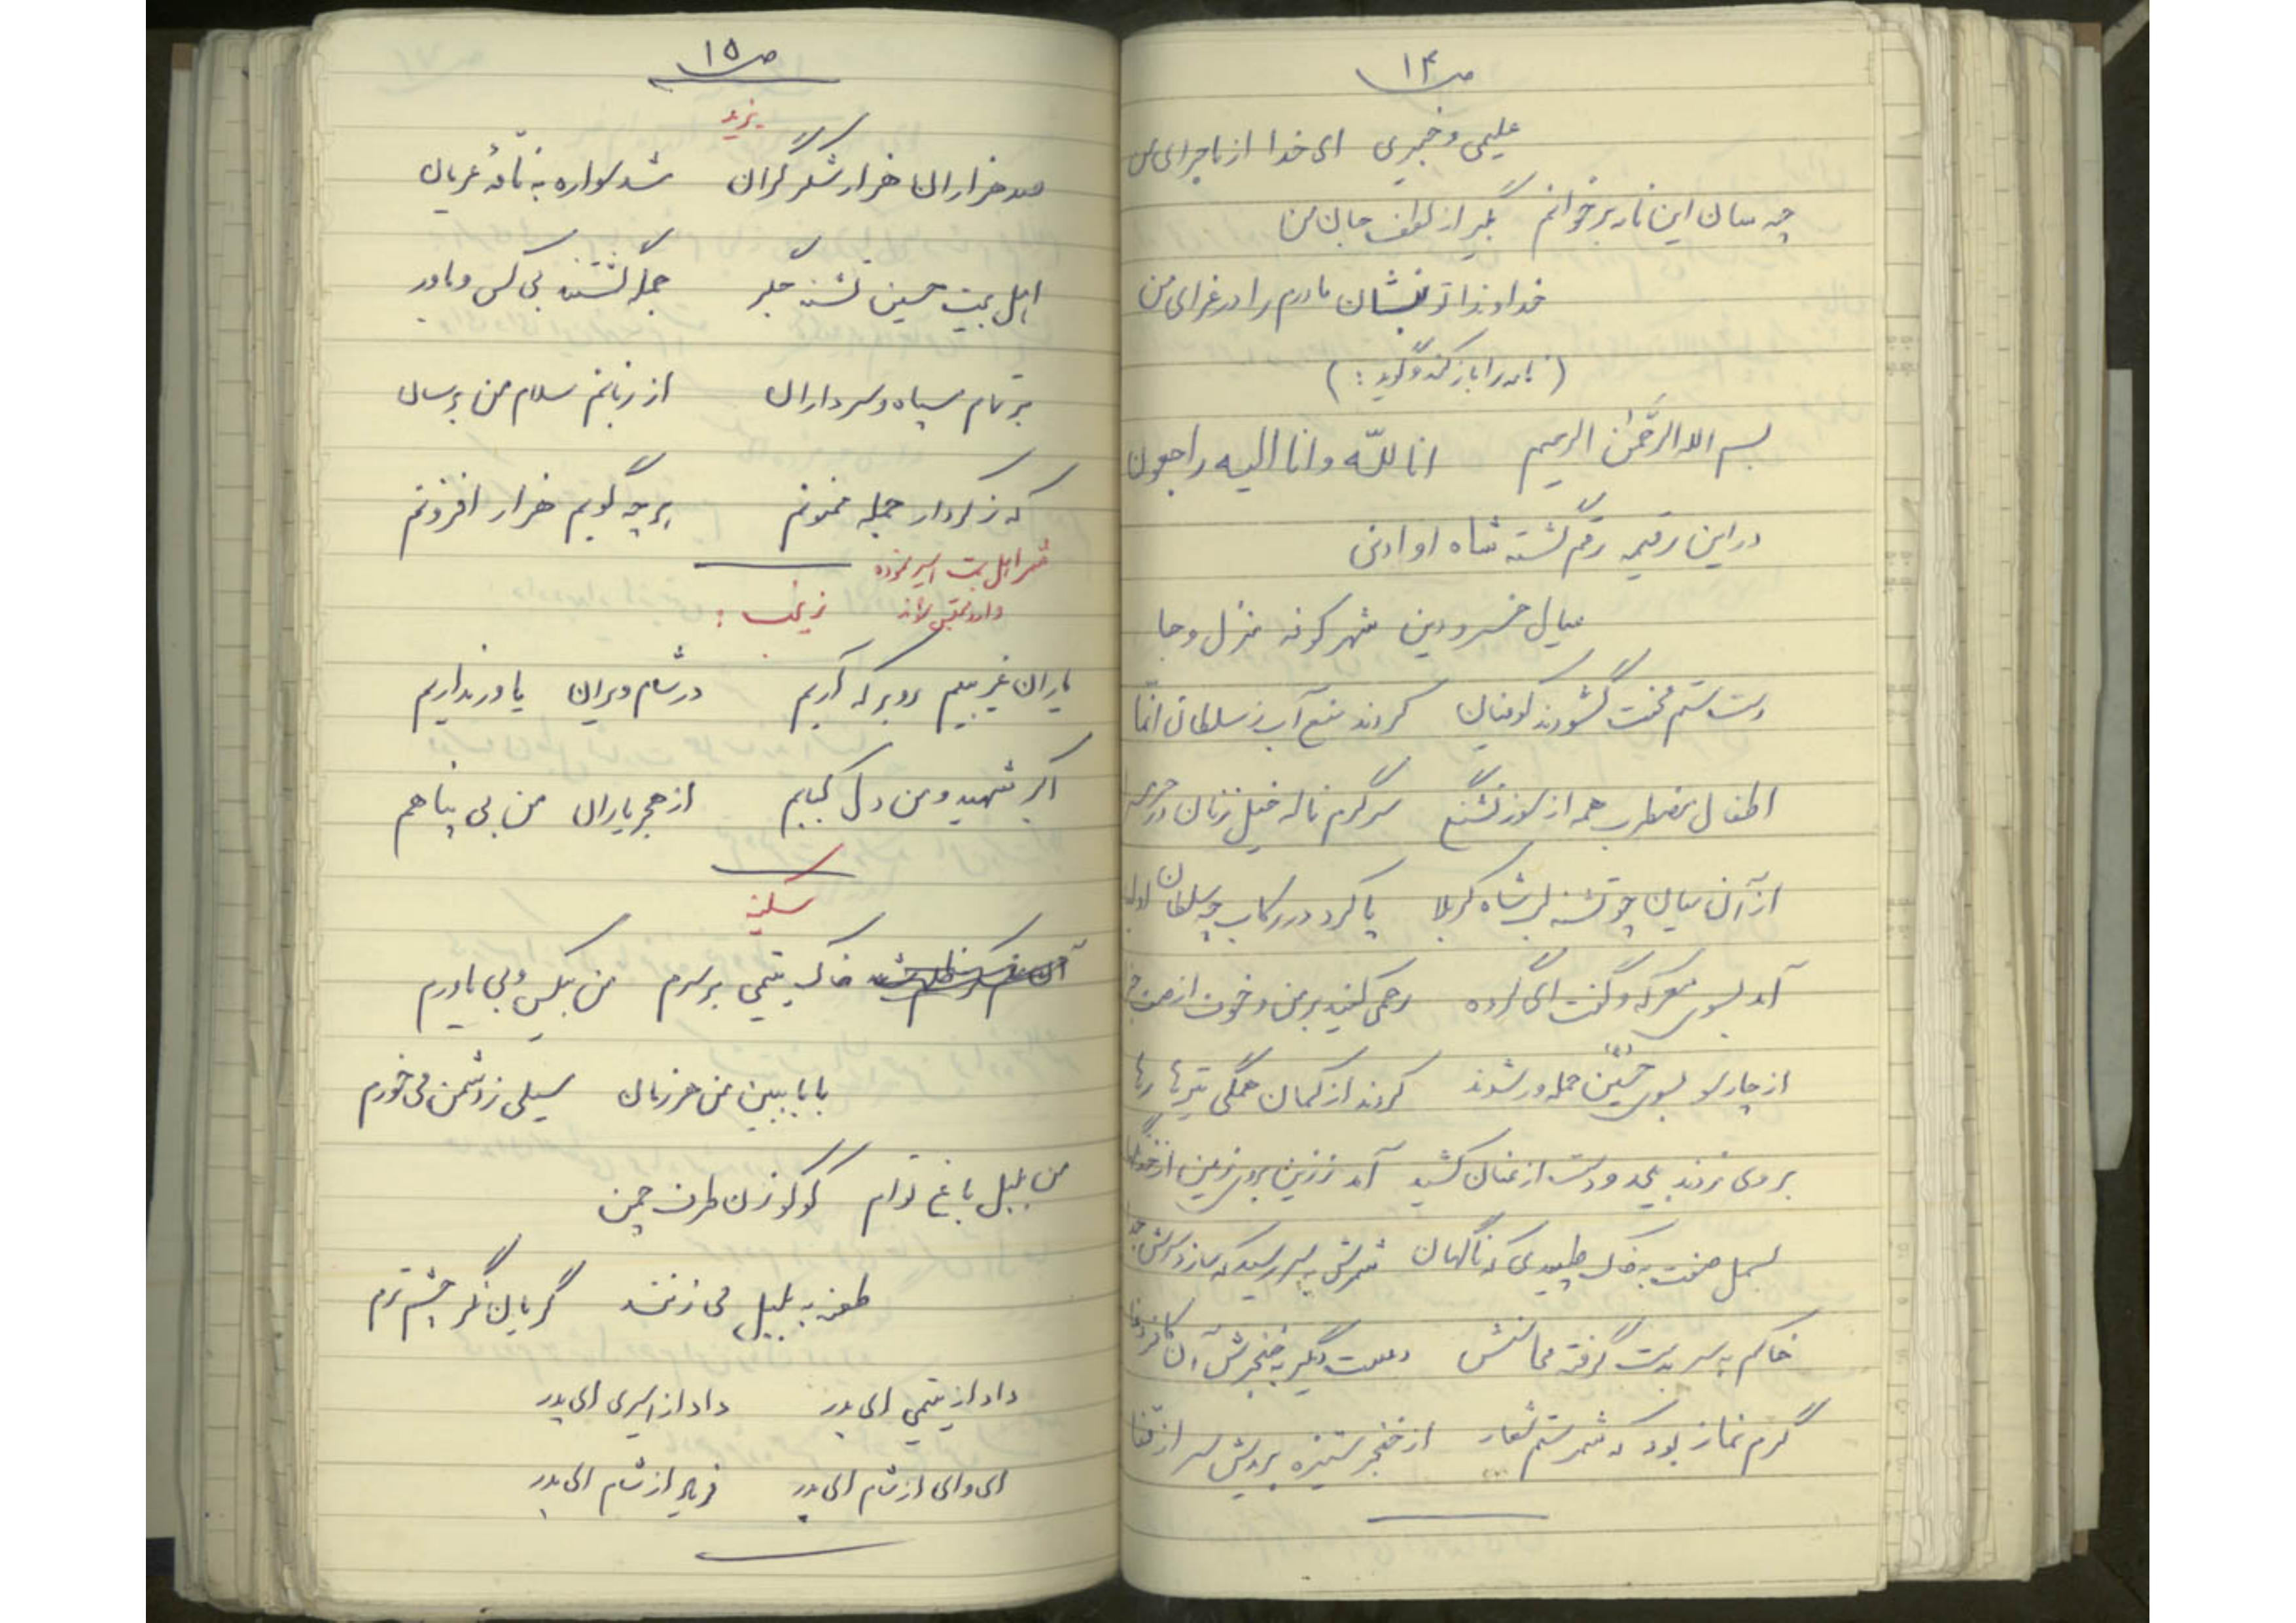 ص ۱۴
علیمی و خبیری ای خدا از ماجرای من
چه سان این نامه برخوانم بگیر از لطف جان من
خداوندا تو بنشان مادرم را در عزای من
(نامه را باز کند و گوید:)
بسم الله الرَّحمٰن الرحیم انا للّه و انا الیه راجعون
در این رقیمه رقم گشته شاه او ادنی
میان خسرو دین شهر کوفه منزل و جا
دست ستم نخست گشودند کوفیان کردند منع آب ز سلطان انّما
اطفال مضطرب همه از سوز تشنگی سرگرم ناله خیل زنان در
از آن میان چو تشنه لب شاه کربلا پا کرد در رکاب چه سلطان
آمد بسوی معرکه و گفت ای گروه رحمی کنید بر من و خوف از
از چار سو بسوی حسین حمله ور شدند کردند از کمان همگی تیرها رها
بر وی زدند بیحد و دست از عنان کشید آمد ز زین بروی زمین از
بسمل صفت به خاک طپیدی که ناگهان شمرش به سر رسید که سازد سرش
خاکم به سر بدست گرفته محاسنش دست دگر به خنجرش آن کافر
گرم نماز بود که شمر ستم شعار از خنجر ستیزه بریدش سر از قفا
ص ۱۵
یزید
صد هزاران هزار شکر گران شد سواره به ناقهٔ عریان
اهل بیت حسین تشنه جگر جمله گشتند بی کس و یاور
بر تمام سپاه و سرداران از زبانم سلام من برسان
که ز کردار جمله ممنونم هر چه گویم هزار افزونم
شمر اهل بیت اسیر نموده
وارد زینب :
یاران غریبیم رو بر که آریم در شام ویران یاور نداریم
اکبر شهید و من دل کبابم از هجر یاران من بی پناهم
سکینه
خاک یتیمی بر سرم من بیکس و بی یاورم
بابا ببین من هر زمان سیلی ز دشمن می خورم
من بلبل باغ توام کوکو زن طرف چمن
طعنه به بلبل می زنند گریان نگر چشم ترم
داد از یتیمی ای پدر داد از اسیری ای پدر
ای وای از شام ای پدر فریاد از شام ای پدر